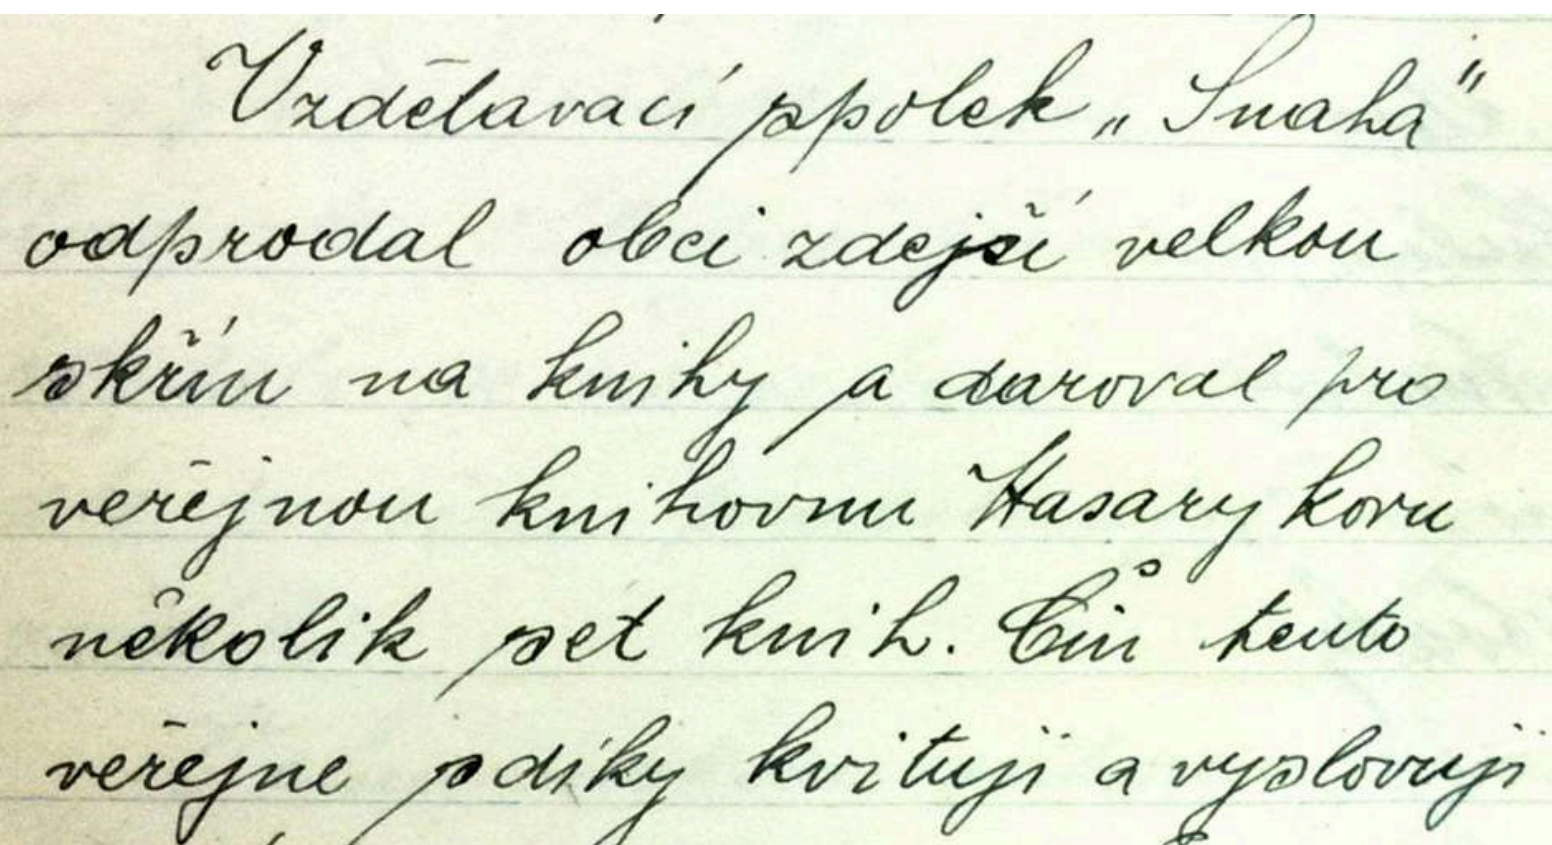 Vzdělavací spolek „Snaha"
odprodal obci zdejší velkou
skříň na knihy a daroval pro
veřejnou knihovnu Masarykovu
několik set knih. Čin tento
veřejne s díky kvituji a vyslovuji